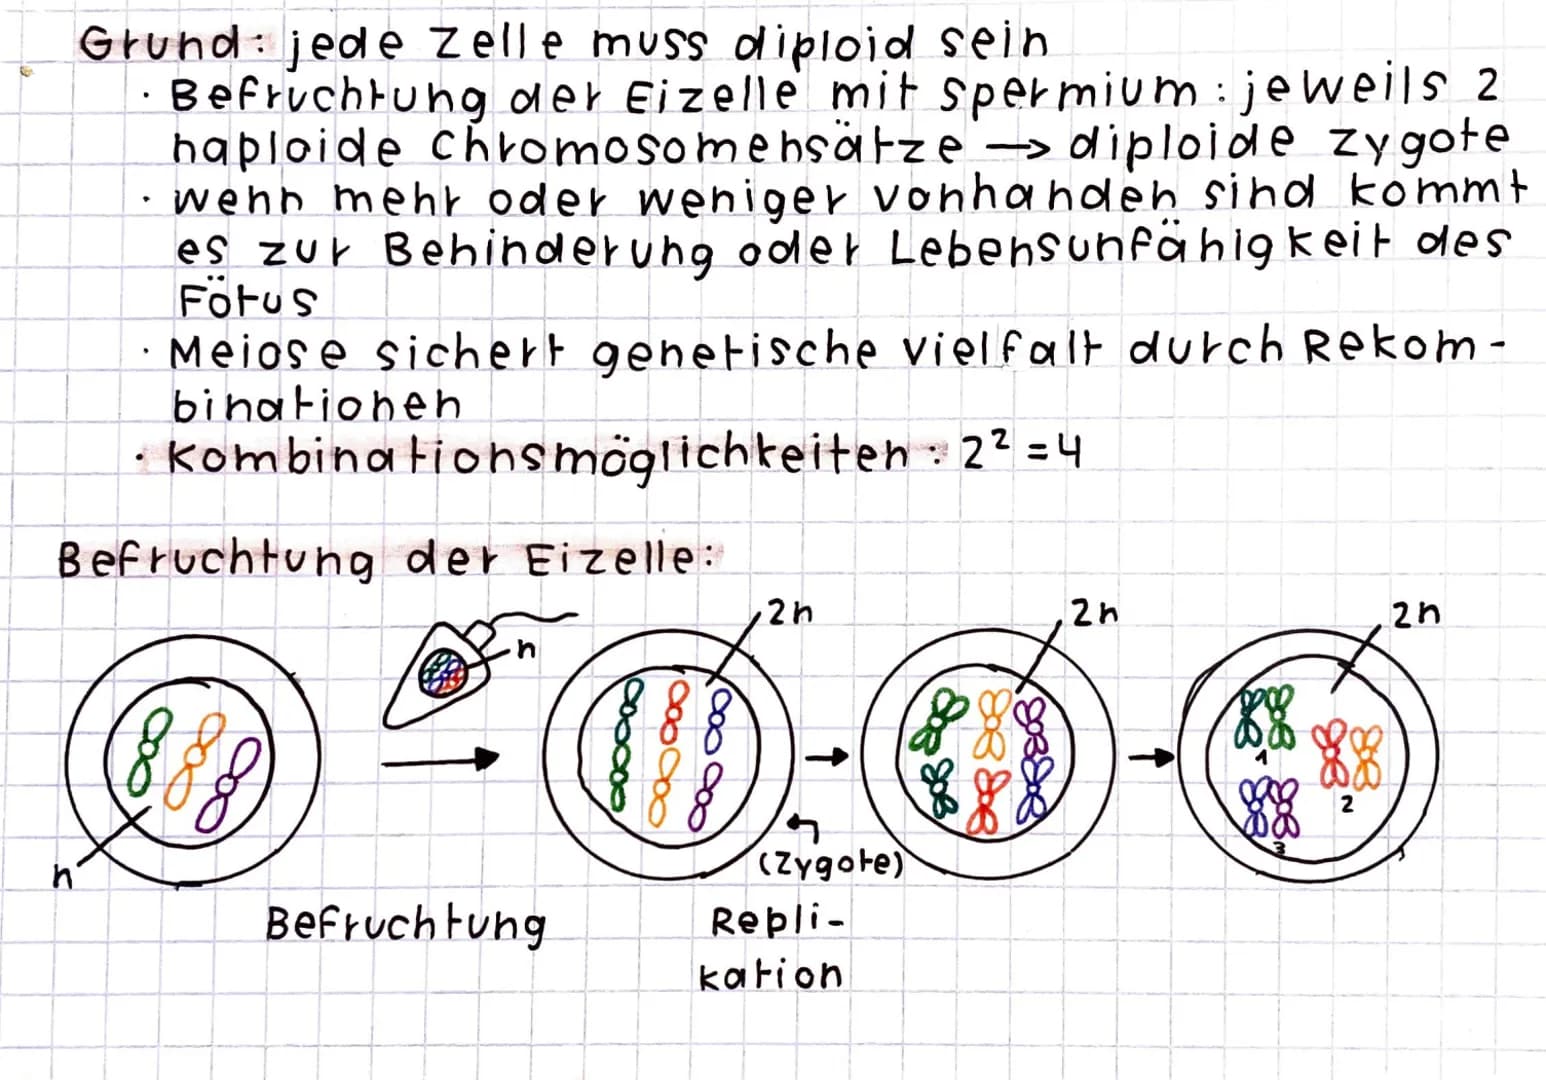 Grund: jede Zelle muss diploid sein
· Befruchtung der Eizelle mit Spermium: jeweils 2
haploide Chromosomensätze → diploide Zygote
· wenn mehr oder weniger vorhanden sind kommt
es zur Behinderung oder Lebensunfähigkeit des
Fötus
· Meiose sichert genetische Vielfalt durch Rekom-
binationen
· Kombinationsmöglichkeiten: 2² = 4
Befruchtung der Eizelle:
2n 2n 2n
n
1
2
3
(Zygote)
n
Befruchtung Repli-
kation